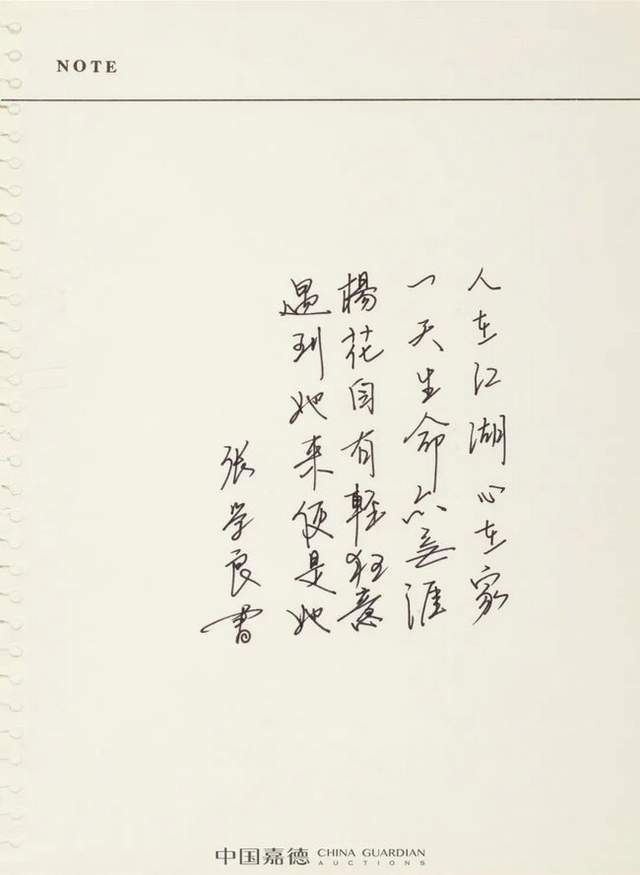 NOTE
人在江湖心在家
一天生命亦無涯
楊花自有輕狂意
遇到她來便是她
張学良書
中国嘉德 CHINA GUARDIAN
AUCTIONS